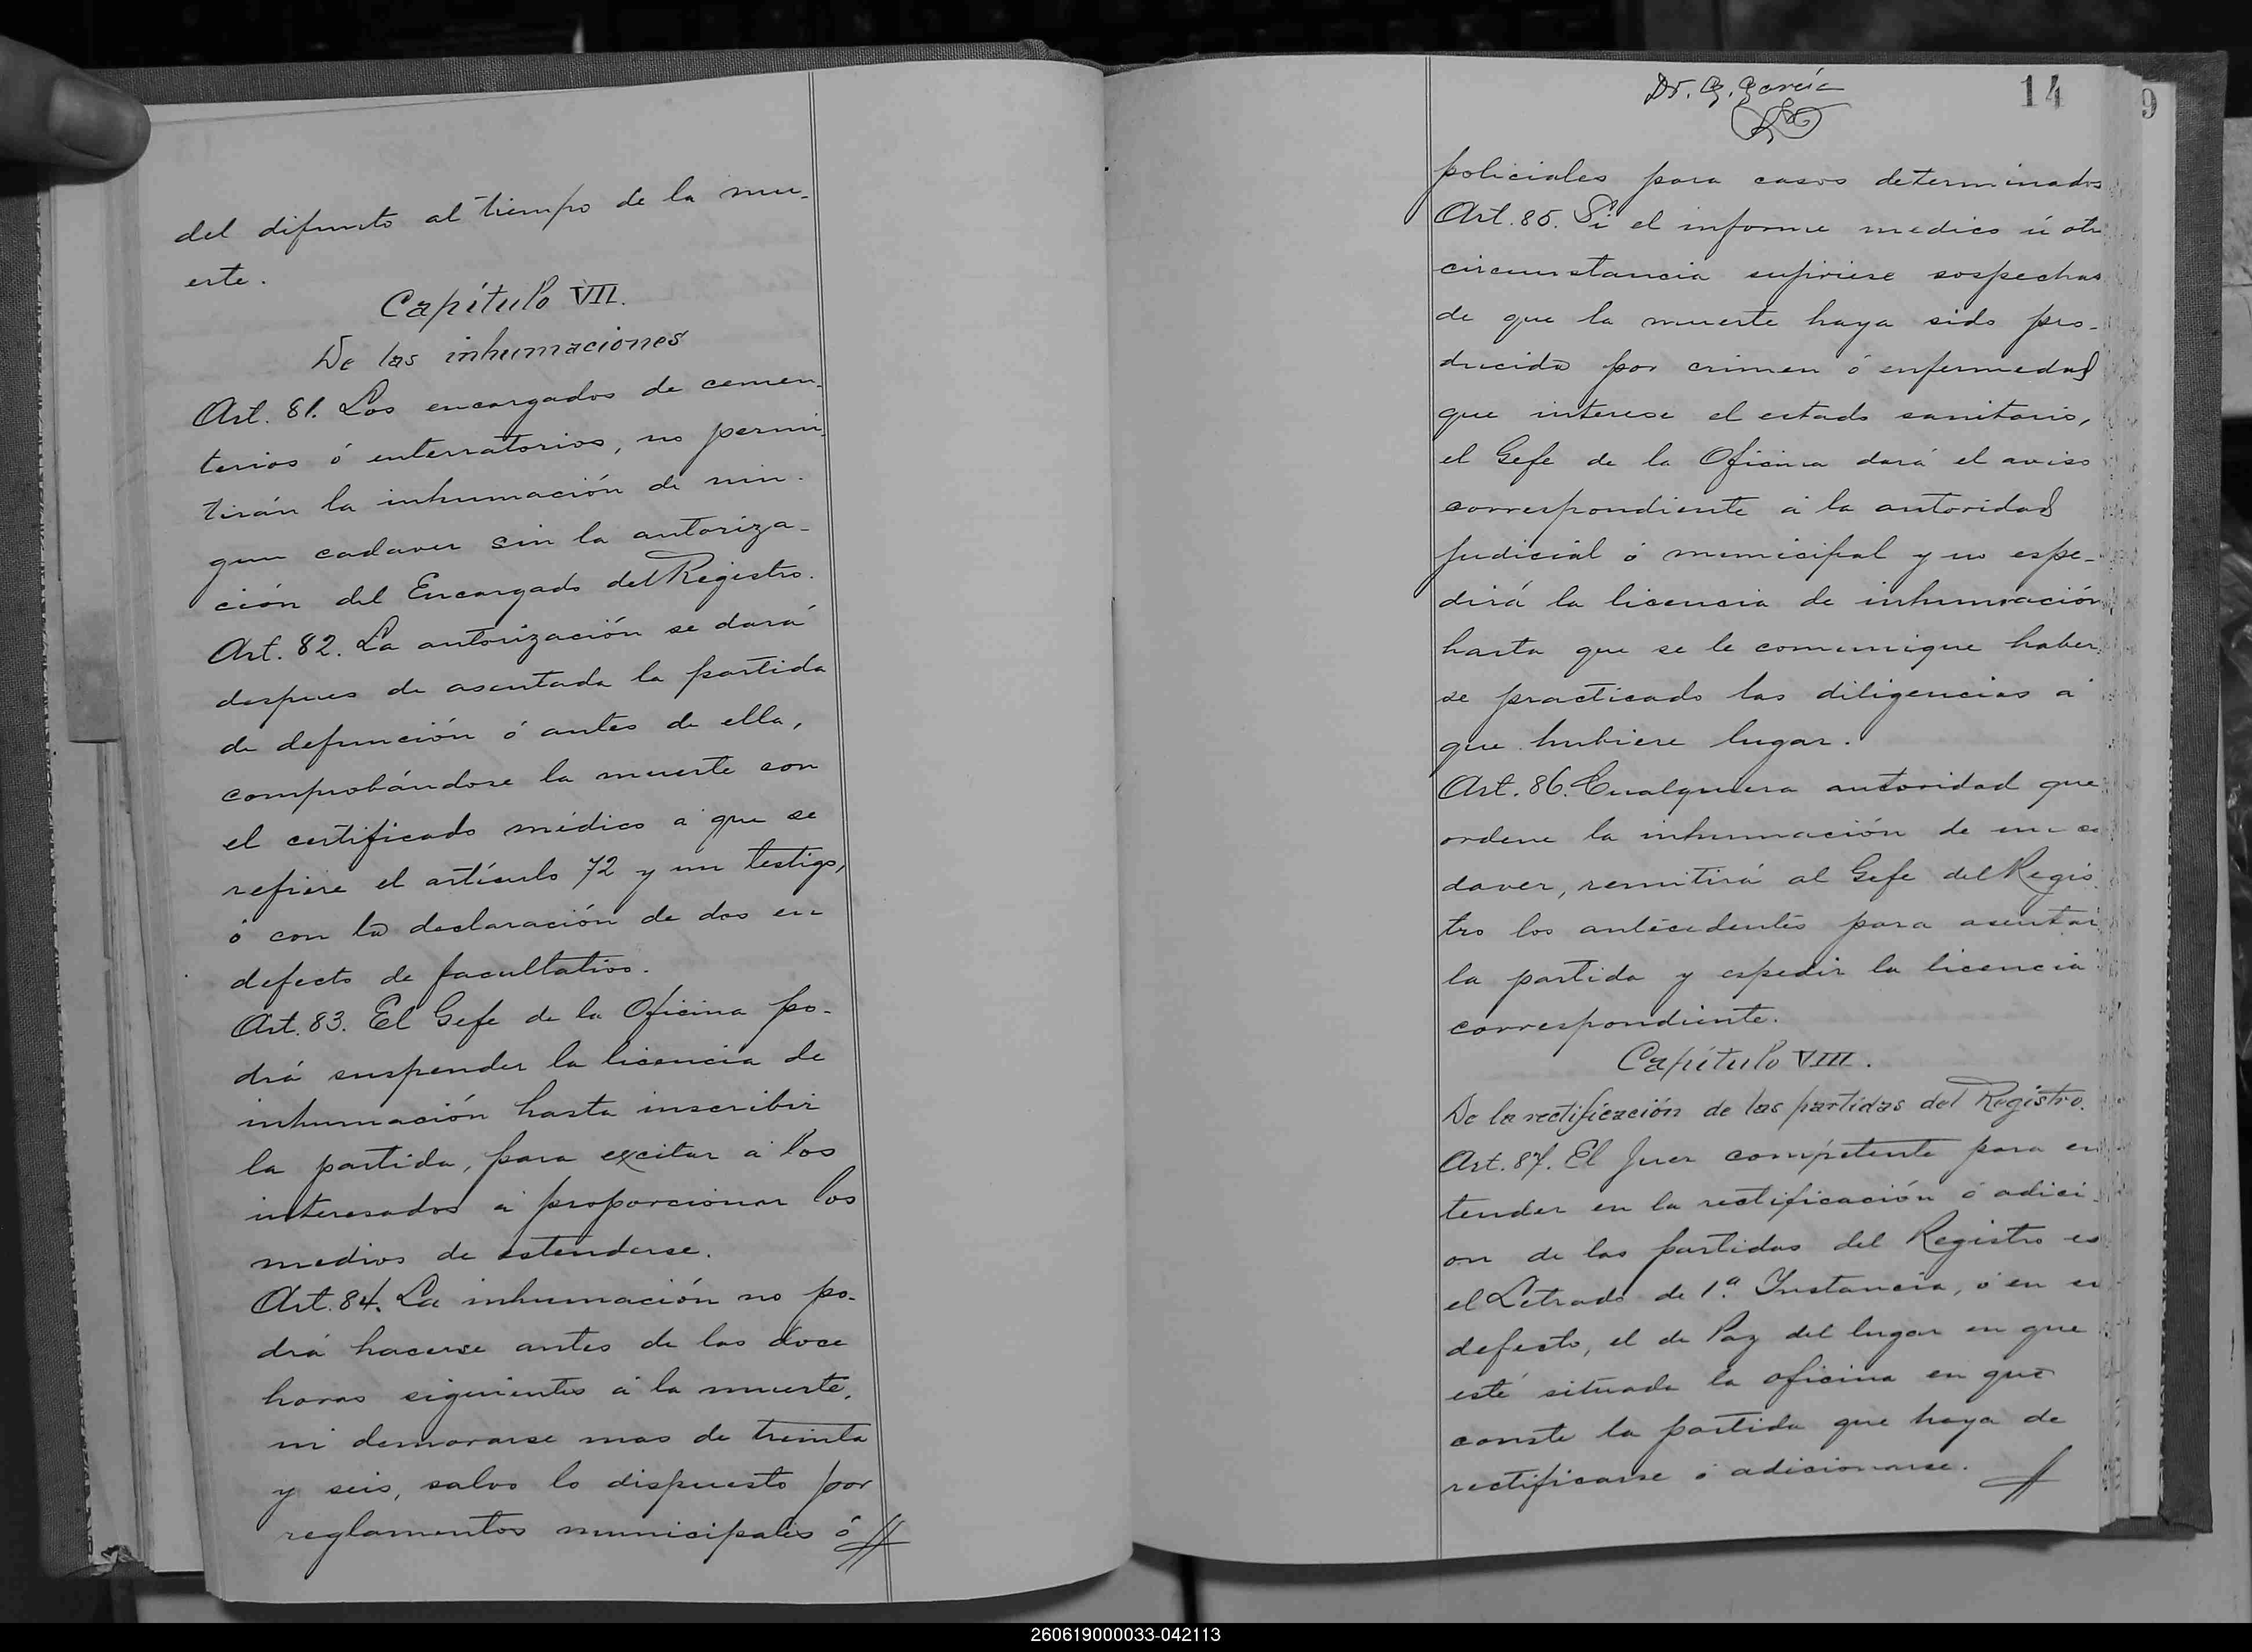 del difunto al tiempo de la mu-
erte.
Capítulo VII.
De las inhumaciones
Art. 81. Los encargados de cemen-
terios ó enterratorios, no permi-
tirán la inhumación de nin-
gun cadaver sin la autoriza-
ción del Encargado del Registro.
Art. 82. La autorización se dará
despues de asentada la partida
de defunción ó antes de ella,
comprobándose la muerte con
el certificado médico á que se
refiere el artículo 72 y un testigo,
ó con la declaración de dos en
defecto de facultativo.
Art. 83. El Gefe de la Oficina po-
drá suspender la licencia de
inhumación hasta inscribir
la partida, para excitar á los
interesados á proporcionar los
medios de estenderse.
Art. 84. La inhumación no po-
drá hacerse antes de las doce
horas siguientes á la muerte,
ni demorarse mas de treinta
y seis, salvo lo dispuesto por
reglamentos municipales ó
Dr. G. García
14
9
policiales para casos determinados
Art. 85. Si el informe medico ú otr
circunstancia sufiriese sospechas
de que la muerte haya sido pro-
ducida por crimen ó enfermedad
que interese el estado sanitario,
el Gefe de la Oficina dará el aviso
correspondiente á la autoridad
Judicial ó municipal y no espe-
dirá la licencia de inhumación
hasta que se le comunique haber
se practicado las diligencias á
que hubiere lugar.
Art. 86. Cualquiera autoridad que
ordene la inhumación de un ca
daver, remitirá al Gefe del Regis
tro los antecedentes para asentar
la partida y espedir la licencia
correspondiente.
Capítulo VIII.
De la rectificación de las partidas del Registro.
Art. 87. El Juez competente para en
tender en la rectificación ó adici
on de las partidas del Registro es
el Letrado de 1.ª Instancia, ó en su
defecto, el de Paz del lugar en que
esté situada la oficina en que
conste la partida que haya de
rectificarse ó adicionarse.
260619000033-042113